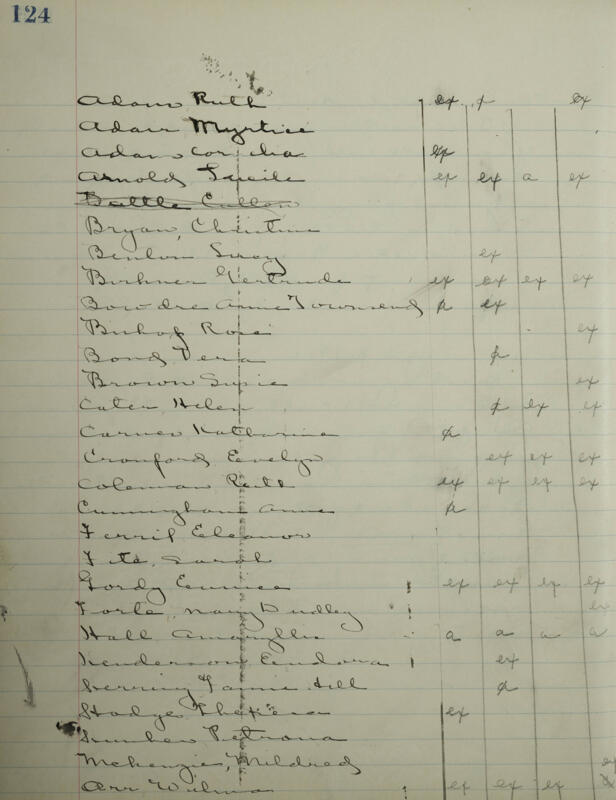 124
Adams Ruth ex p ex
Adair Myrtice
Adams Cordelia ex
Arnold Lucile ex ex a ex
Battle
Bryan, Christine
Benton Lucy ex
Birkner Gertrude ex ex ex ex
Bowdre Annie Townsend p ex
Bishop Rosi ex
Bond Vera p
Brown Susie ex
Cater, Helen p ex ex
Carnes Katharine p
Crawford, Evelyn ex ex ex
Coleman Ruth ex ex ex ex
Cunningham Anne p
Ferril Eleanor
Fite, Sarah
Gordy Eunice ex ex ex ex
Forte, Mary Dudley ex
Hall Amaryllis a a a a
Henderson Eudora ex
Herring Fannie Hill p
Hodge Theresa ex
Petrona
McKenzie, Mildred ex
Arr Wilma ex ex ex